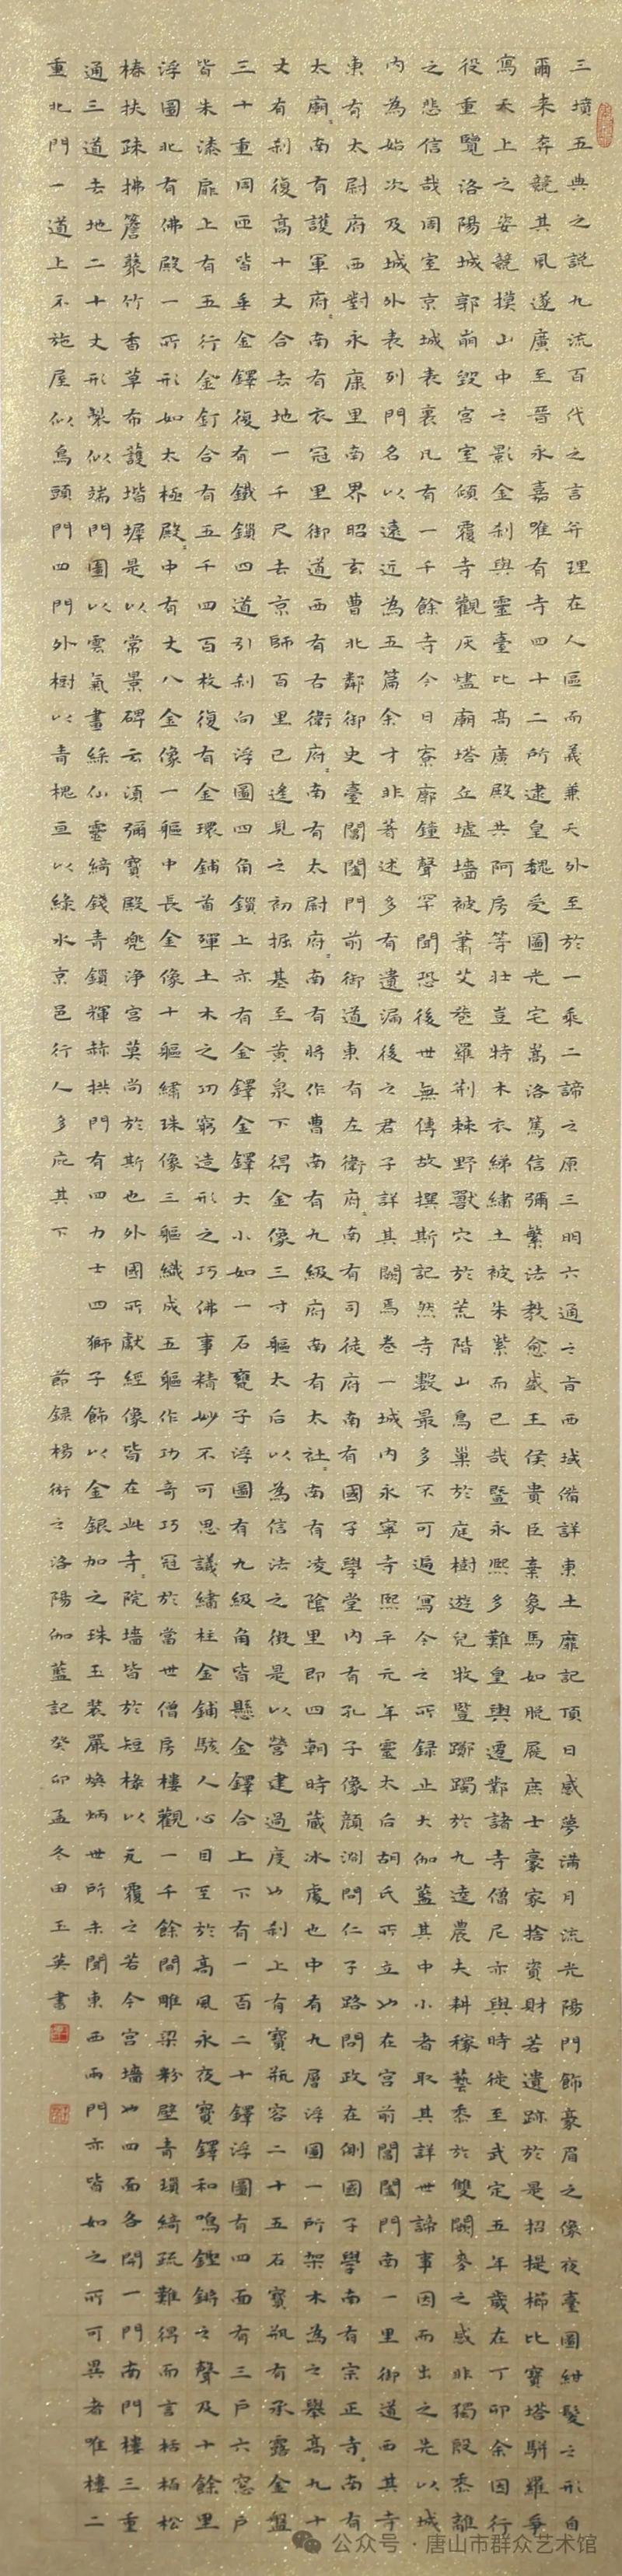 三墳五典之説九流百代之言并理在人區而義兼天外至於一乘二諦之原三明六通之旨西域備詳東土靡記頂日感夢滿月流光陽門飾豪眉之像夜臺圖紺髮之形自
爾來奔競其風遂廣至晉永嘉唯有寺四十二所逮皇魏受圖光宅嵩洛篤信彌繁法教愈盛王侯貴臣棄象馬如脫屣庶士豪家捨資財若遺跡於是招提櫛比寶塔駢羅爭
寫天上之姿競摸山中之影金剎與靈臺比高廣殿共阿房等壯豈特木衣綈繡土被朱紫而已哉暨永熙多難皇輿遷鄴諸寺僧尼亦與時徙至武定五年歲在丁卯余因行
役重覽洛陽城郭崩毀宮室傾覆寺觀灰燼廟塔丘墟墻被蕭艾巷羅荊棘野獸穴於荒階山鳥巢於庭樹遊兒牧豎躑躅於九逵農夫耕稼藝黍於雙闕麥之感非獨殷黍離
之悲信哉周室京城表裏凡有一千餘寺今日寮廓鐘聲罕聞恐後世無傳故撰斯記然寺數最多不可遍寫今之所録止大伽藍其中小者取其詳世諦事因而出之先以城
內為始次及城外表列門名以遠近為五篇余才非著述多有遺漏後之君子詳其闕焉卷一城內永寧寺熙平元年靈太后胡氏所立也在宮前閶闔門南一里御道西其寺
東有太尉府西對永康里南界昭玄曹北鄰御史臺閶闔門前御道東有左衛府〻南有司徒府南有國子學堂內有孔子像顏淵問仁子路問政在側國子學南有宗正寺〻南有
太廟〻南有護軍府〻南有衣冠里御道西有右衛府〻南有太尉府〻南有將作曹南有九級府南有太社〻南有凌陰里即四朝時藏冰處也中有九層浮圖一所架木為之舉高九十
丈有剎復高十丈合去地一千尺去京師百里已遙見之初掘基至黃泉下得金像三寸軀太后以為信法之徵是以營建過度也剎上有寶瓶容二十五石寶瓶有承露金盤
三十重周匝皆垂金鐸復有鐵鎖四道引剎向浮圖四角鎖上亦有金鐸金鐸大小如一石甕子浮圖有九級角皆懸金鐸合上下有一百二十鐸浮圖有四面有三戶六窓戶
皆朱漆扉上有五行金釘合有五千四百枚復有金環鋪首殫土木之功窮造形之巧佛事精妙不可思議繡柱金鋪駭人心目至於高風永夜寶鐸和鳴鏗鏘之聲及十餘里
浮圖北有佛殿一所形如太極殿〻中有丈八金像一軀中長金像十軀繡珠像三軀織成五軀作功奇巧冠於當世僧房樓觀一千餘間雕梁粉壁青瑣綺疏難得而言栝柏松
椿扶疎拂簷藂竹香草布護堦墀是以常景碑云須彌寶殿兜淨宮莫尚於斯也外國所獻經像皆在此寺〻院墻皆於短椽以瓦覆之若今宮墻也四面各開一門南門樓三重
通三道去地二十丈形製似端門圖以雲氣畫綵仙靈綺錢青鎖輝赫拱門有四力士四獅子飾以金銀加之珠玉裝嚴煥炳世所未聞東西兩門亦皆如之所可異者唯樓二
重北門一道上不施屋似烏頭門四門外樹以青槐亘以綠水京邑行人多庇其下 節録楊衒之洛陽伽藍記癸卯孟冬田玉英書
公众号·唐山市群众艺术馆